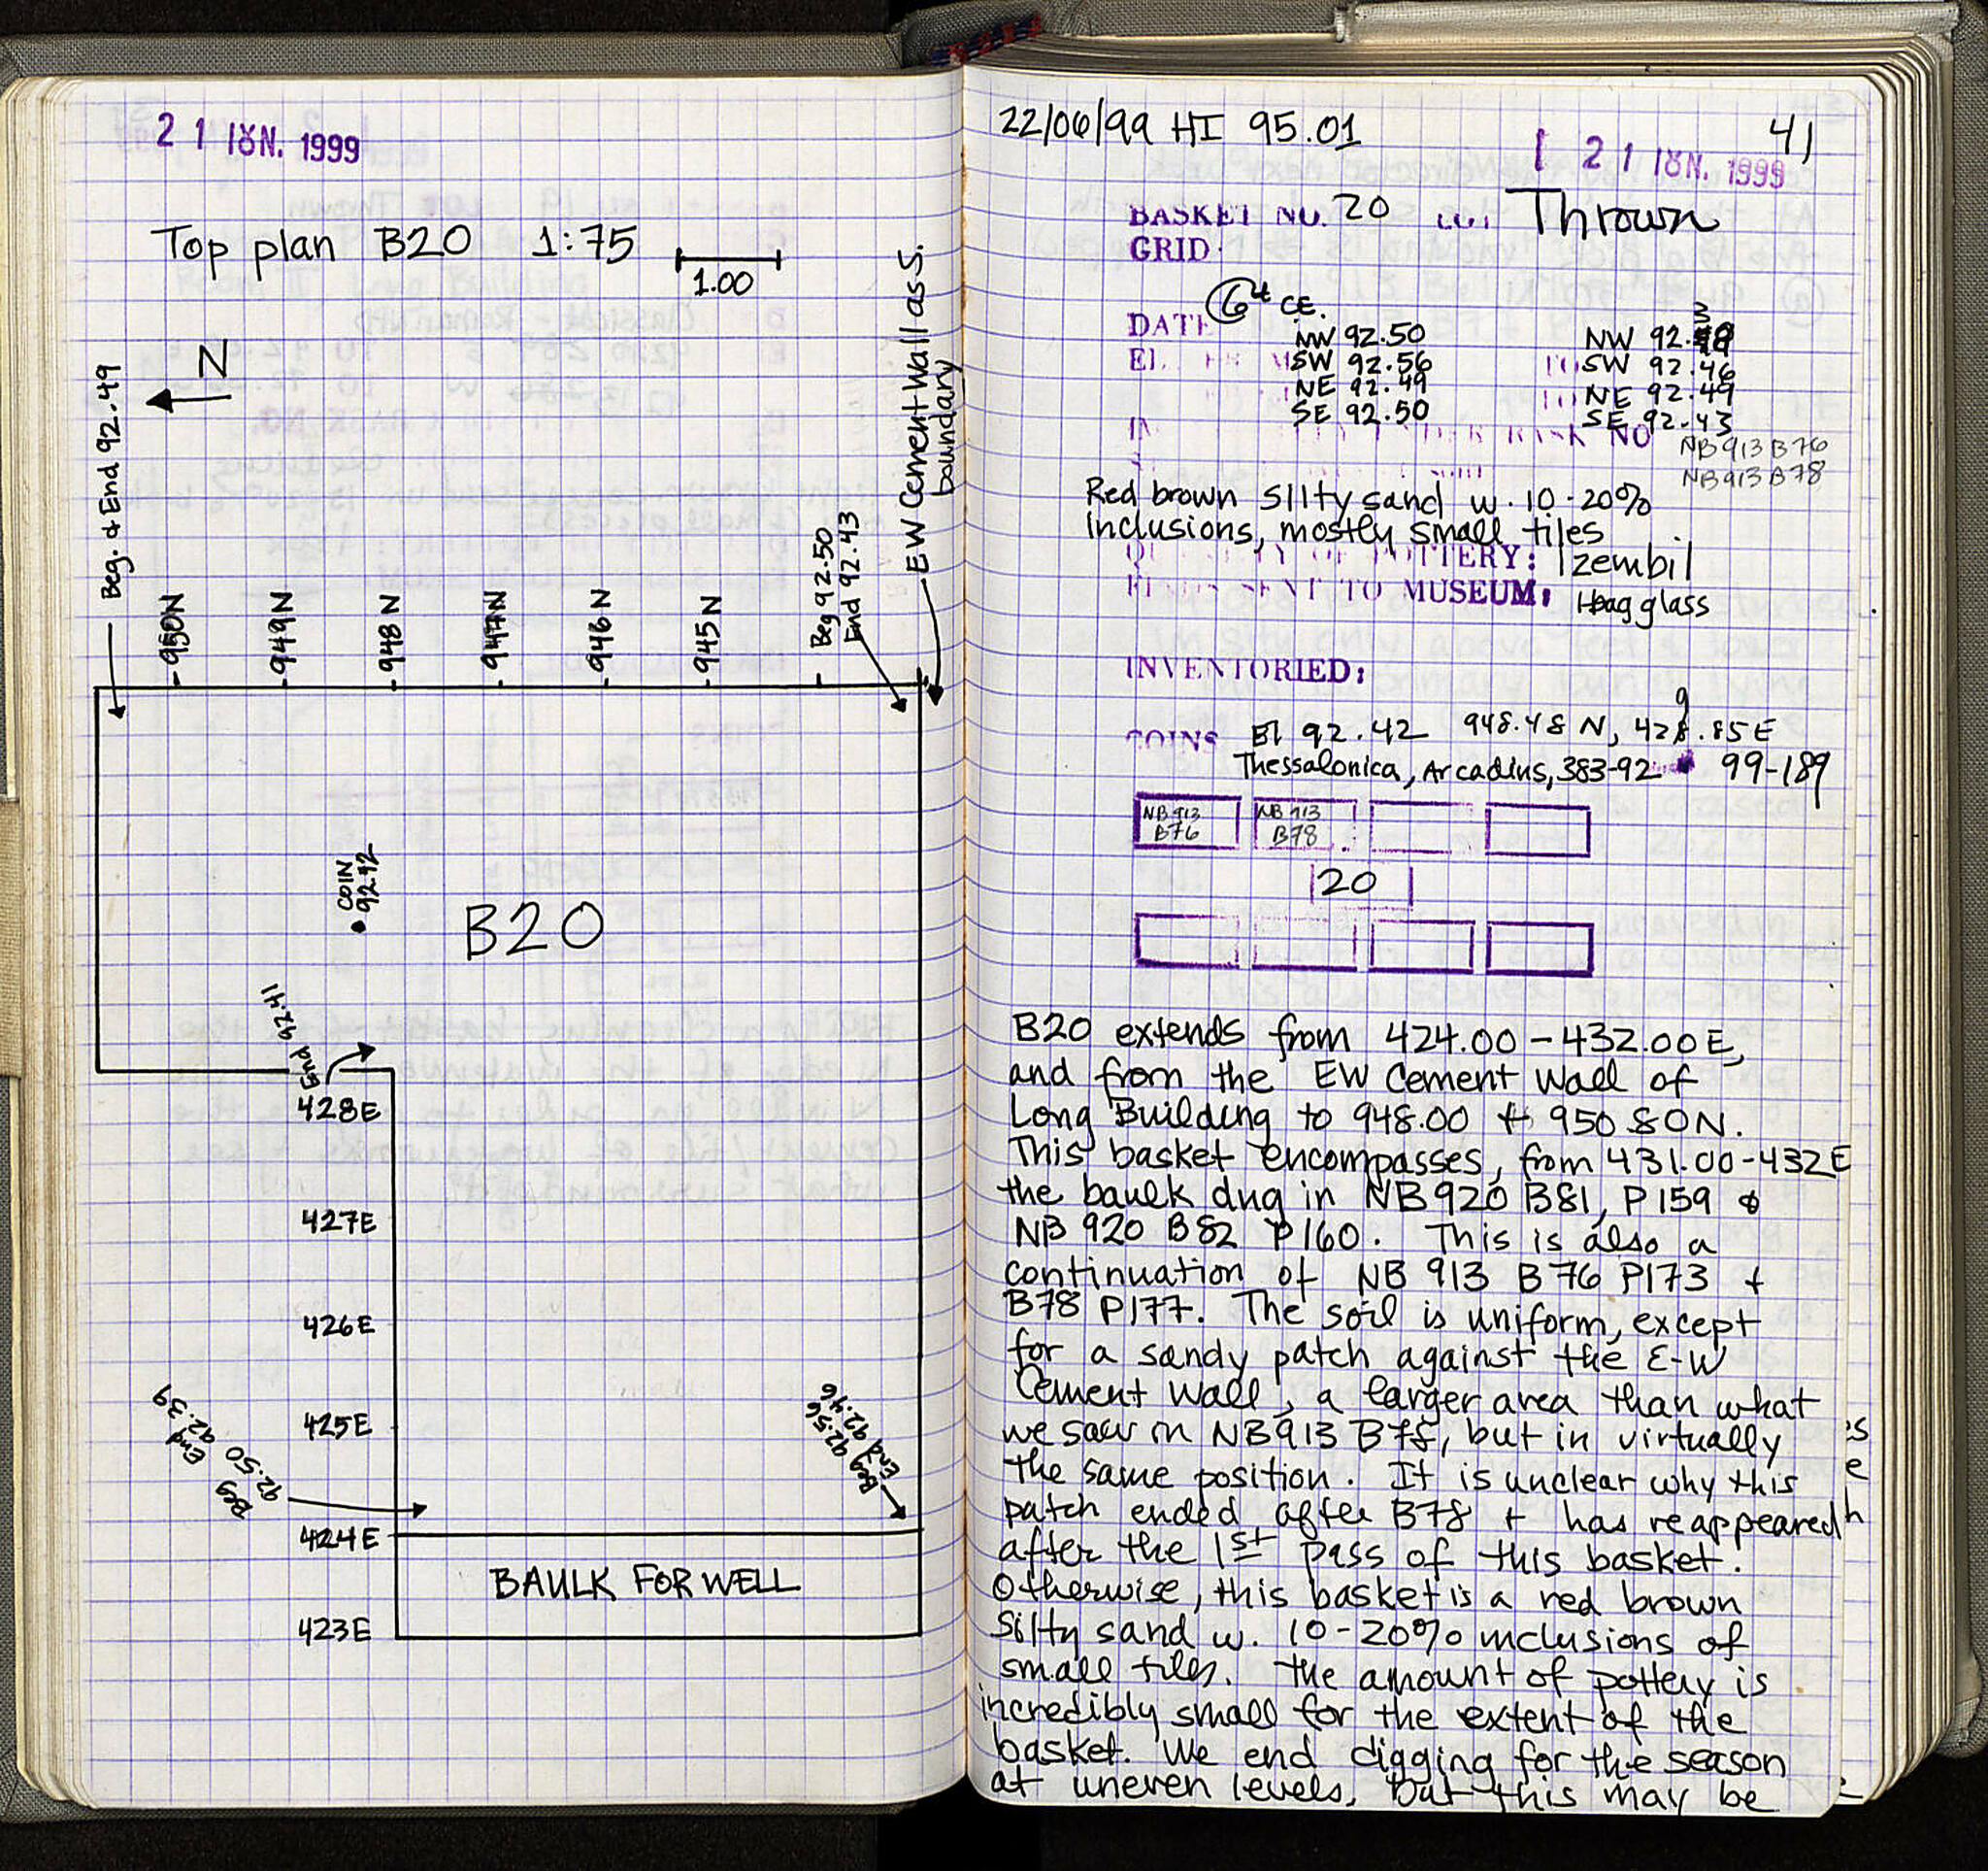 2 1 ΙΟΥΝ. 1999
Top plan B20 1:75
1.00
N
Beg. & End 92.49
950N
949N
948 N
947N
946 N
945 N
Beg 92.50
End 92.43
EW Cement Wall as S.
boundary
COIN
92.42
B20
End 92.41
428E
427E
426E
425E
424E
423E
Beg 92.50
End 92.39
Beg 92.56
End 92.46
BAULK FOR WELL
22/06/99 HI 95.01 41
2 1 ΙΟΥΝ. 1999
BASKET NO. 20 LOT Thrown
GRID
DATE 6th CE.
NW 92.50 NW 92.39
SW 92.56 TO SW 92.46
NE 92.49 TO NE 92.49
SE 92.50 SE 92.43
BASK NO
NB 913 B76
NB 913 B78
Red brown silty sand w. 10-20%
inclusions, mostly small tiles
QUANTITY OF POTTERY: 1 zembil
FINDS SENT TO MUSEUM: 1 bag glass
INVENTORIED:
COINS El 92.42 948.48 N, 429.85E
Thessalonica, Arcadius, 383-92 99-189
NB 913 B76
NB 913 B78
20
B20 extends from 424.00-432.00E,
and from the EW Cement Wall of
Long Building to 948.00 + 950.80N.
This basket encompasses, from 431.00-432E
the baulk dug in NB 920 B81, P159 &
NB 920 B82 P160. This is also a
continuation of NB 913 B76 P173 +
B78 P177. The soil is uniform, except
for a sandy patch against the E-W
Cement Wall, a larger area than what
we saw in NB913 B78, but in virtually
the same position. It is unclear why this
patch ended after B78 + has reappeared
after the 1st pass of this basket.
Otherwise, this basket is a red brown
silty sand w. 10-20% inclusions of
small tiles. The amount of pottery is
incredibly small for the extent of the
basket. We end digging for the season
at uneven levels, but this may be